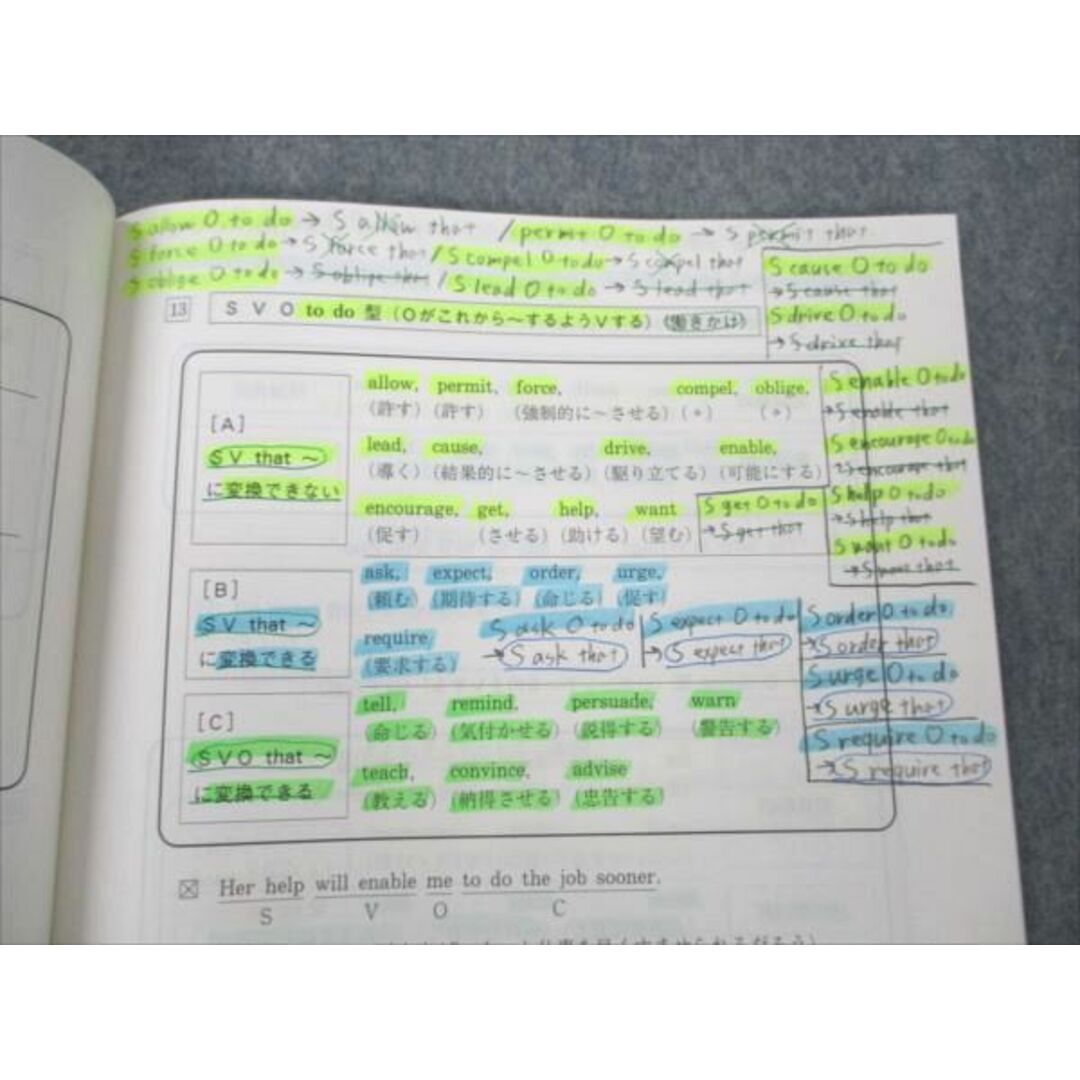 S allow O to do → S allow that / permit O to do → S permit that
S force O to do → S force that / S compel O to do → S compel that
S oblige O to do → S oblige that / S lead O to do → S lead that
S cause O to do
→ S cause that
S drive O to do
→ S drive that
13 S V O to do 型 (Oがこれから～するようVする) (働きかけ)
[A]
SV that ～
に変換できない
allow, permit, force, compel, oblige,
(許す) (許す) (強制的に～させる) (〃) (〃)
lead, cause, drive, enable,
(導く) (結果的に～させる) (駆り立てる) (可能にする)
encourage, get, help, want
(促す) (させる) (助ける) (望む)
S get O to do
→ S get that
S enable O to do
→ S enable that
S encourage O to do
→ S encourage that
S help O to do
→ S help that
S want O to do
→ S want that
[B]
SV that ～
に変換できる
ask, expect, order, urge,
(頼む) (期待する) (命じる) (促す)
require
(要求する)
S ask O to do
→ S ask that
S expect O to do
→ S expect that
S order O to do
→ S order that
S urge O to do
→ S urge that
S require O to do
→ S require that
[C]
SVO that ～
に変換できる
tell, remind, persuade, warn
(命じる) (気付かせる) (説得する) (警告する)
teach, convince, advise
(教える) (納得させる) (忠告する)
Her help will enable me to do the job sooner.
S V O C